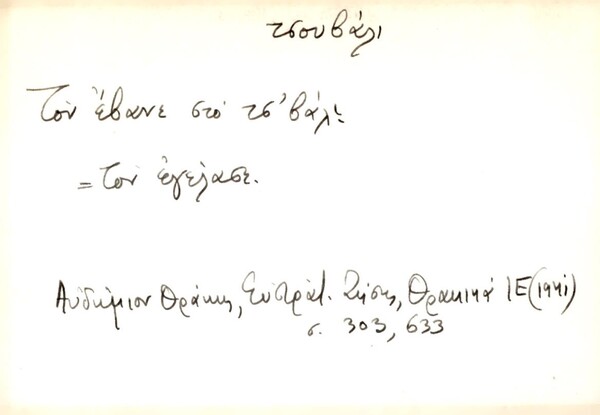 τσουβάλι
Τὸν ἔβανε στὸ τσ'βάλ̇ι
= Τὸν ἐγέλασε.
Αὐδήμιον Θράκης, Εὐστράτ. Ζήσης, Θρακικά ΙΕ (1941)
σ. 303, 633